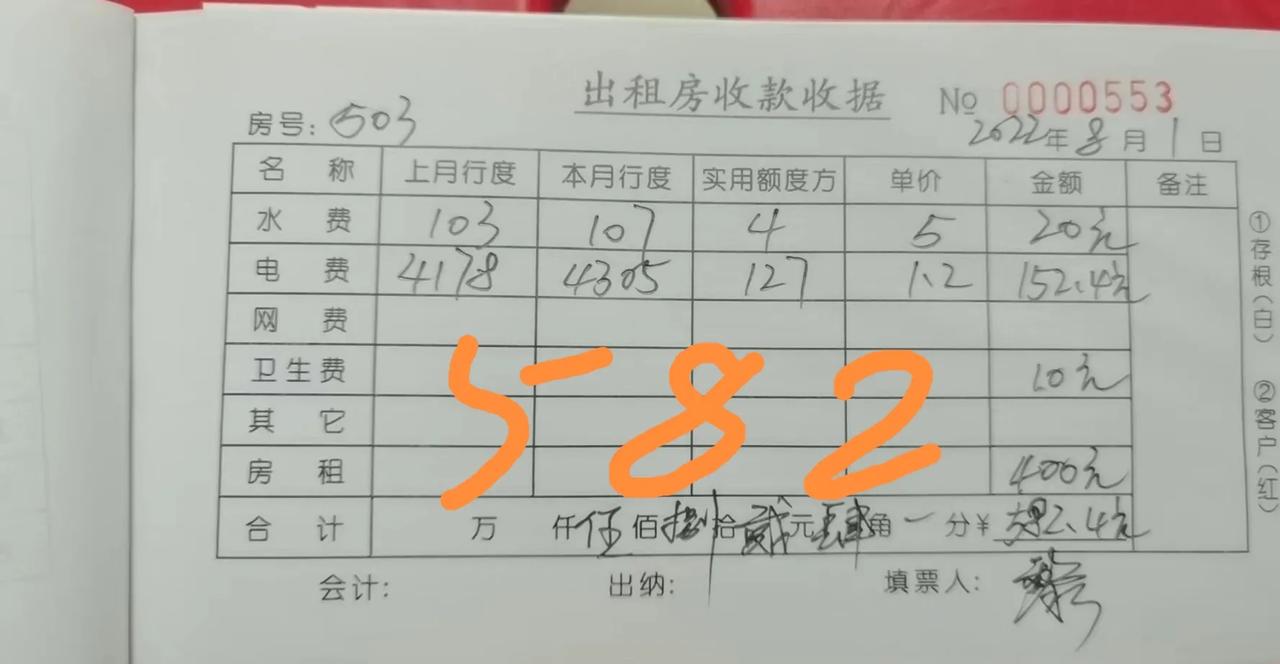 出租房收款收据 № 0000553
房号: 503 2022年8月1日
名称 上月行度 本月行度 实用额度方 单价 金额 备注
水费 103 107 4 5 20元
电费 4178 4305 127 1.2 152.4元
网费
卫生费 10元
其它
房租 400元
582
合计 万 仟伍佰捌拾贰元肆角一分¥ 582.4元
会计: 出纳: 填票人:
①存根(白) ②客户(红)